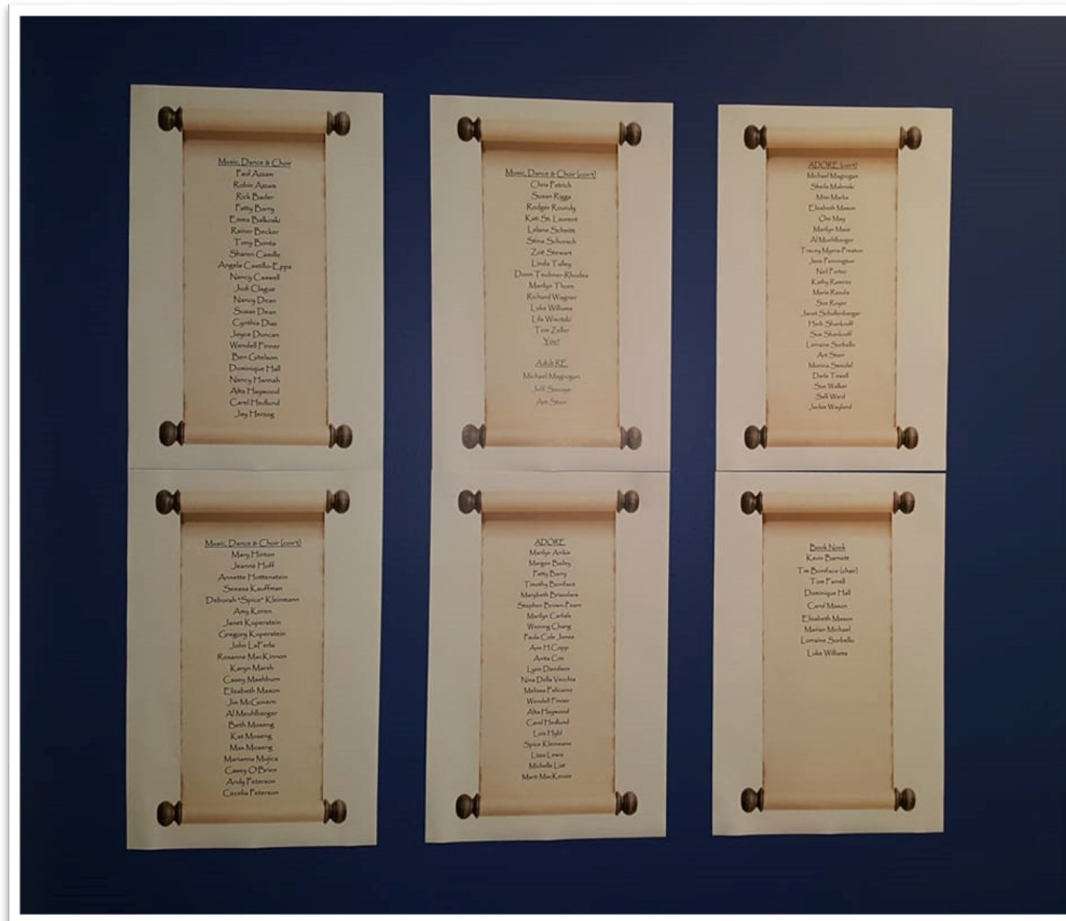 Music, Dance & Choir
Paul Azzam
Robin Azzam
Rick Bader
Patty Barry
Emma Balkoski
Rainer Becker
Tony Bonta
Sharon Castle
Angela Castillo-Epps
Nancy Caswell
Judi Clague
Nancy Dean
Susan Dean
Cynthia Diaz
Joyce Duncan
Wendell Finner
Ben Gitelson
Dominique Hall
Nancy Hannah
Alta Haywood
Carol Hedlund
Jay Herzog
Music, Dance & Choir (con't)
Mary Hinton
Jeanne Hoff
Annette Hottenstein
Kauffman
Deborah "Spice" Kleinmann
Amy Koren
Janet Kuperstein
Gregory Kuperstein
John LaPerla
Roxanne MacKinnon
Karyn Marsh
Casey Mashburn
Elizabeth Mason
Jim McGovern
Al Meuhlberger
Beth Moseng
Kat Moseng
Max Moseng
Marianna Mujica
Casey O'Brien
Andy Peterson
Cecelia Peterson
Music, Dance & Choir (con't)
Chris Patrich
Susan Riggs
Rodger Roundy
Kati St. Laurent
Schmitt
Stina Schorsch
Zoë Stewart
Linda Talley
Donn Teubner-Rhodes
Marilyn Thorn
Richard Wagner
Luke Williams
Lila Wisotski
Tom Zeller
You?
Adult RE
Michael Magrogan
Jeff Savoye
Art Starr
ADORE
Marilyn
Margee Bailey
Patty Barry
Timothy Boniface
Marybeth Brizzolara
Stephen Brown-Pearn
Marilyn Carlisle
Weirong Chang
Paula Cole Jones
Ann H Copp
Anita Cox
Lynn Davidson
Nina Della Vecchia
Melissa Feliciano
Wendell Finner
Alta Haywood
Carol Hedlund
Lois Hybl
Spice Kleinmann
Lizza Lewis
Michelle List
Marti MacKenzie
ADORE (con't)
Michael Magrogan
Sheila Malinski
Mimi Marks
Elizabeth Mason
Che May
Marilyn Maze
Al Muehlberger
Tracey Myers-Preston
Jane Pennington
Neil Porter
Kathy Ramirez
Marie
Sue Royer
Janet Schollenberger
Herb Shankroff
Sue Shankroff
Lorraine Sorbello
Art Starr
Monica Swindel
Darla Tewell
Sue Walker
Salli Ward
Jackie Wayland
Book Nook
Kevin Barnett
Tim Boniface (chair)
Tom Farrell
Dominique Hall
Carol Mason
Elizabeth Mason
Marian Michael
Lorraine Sorbello
Luke Williams